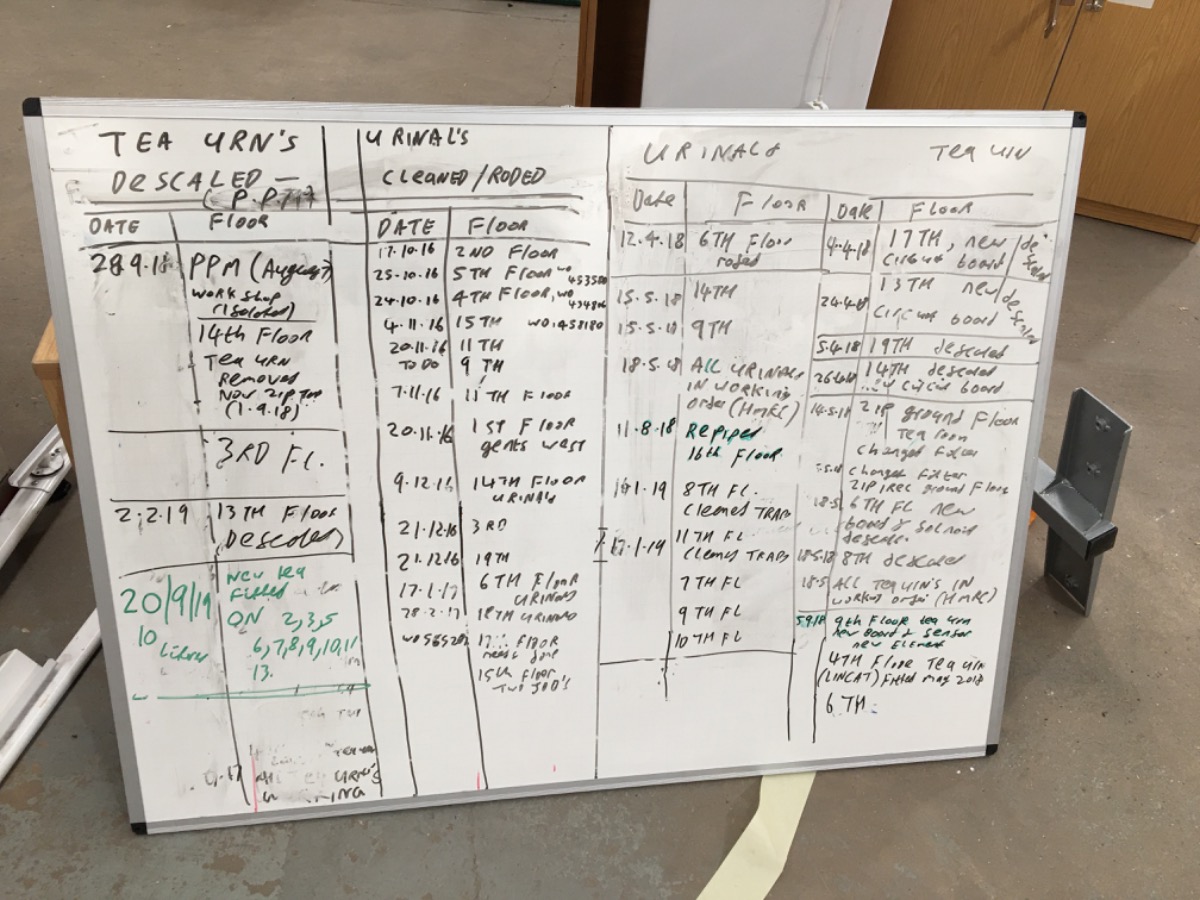 TEA URN'S
DESCALED -
(P.P.M)
DATE FLOOR
28.9.18 PPM (August)
WORK SHOP
(Isolated)
14th Floor
Tea URN
Removed
Now ZIP Tap
(1.9.18)
3RD FL.
2.2.19 13TH FLOOR
Descaled
20/9/19 New Tea
Fitted
10 ON 2,3,5
6,7,8,9,10,11
13.
TEA URN'S
WORKING
URINAL'S
CLEANED/RODED
DATE FLOOR
17.10.16 2ND FLOOR
25.10.16 5TH FLOOR WO
453580
24.10.16 4TH FLOOR, WO
4.11.16 15TH WO.458180
20.11.16 11TH
TO DO 9TH
7.11.16 11TH FLOOR
20.11.16 1ST FLOOR
gents west
9.12.16 14TH FLOOR
URINALS
21.12.16 3RD
21.12.16 19TH
17.1.17 6TH FLOOR
URINALS
28.2.17 18TH URINALS
FLOOR
needs done
15th Floor
TWO JOB'S
URINALS
Date Floor
12.4.18 6TH Floor
roded
15.5.18 14TH
15.5.18 9TH
18.5.18 ALL URINALS
IN WORKING
order (HMRC)
11.8.18 Repiped
16th Floor
8TH FL.
Cleaned TRAPS
17.1.19 11TH FL
Cleaned TRAPS
7TH FL
9TH FL
10TH FL
Tea URN
Date Floor
4.4.18 17TH, new descaled
Circuit board
24.4.18 13TH new descaled
Circuit board
5.4.18 19TH descaled
14TH descaled
circuit board
14.5.18 ZIP ground Floor
Tea room
changed Filter
Changed Filter
ZIP, REC ground Floor
18.5 6TH FL new
board & Solnoid
descale.
18.5.18 8TH descaled
18.5 ALL TEQ URN'S IN
working order (HMRC)
5.9.18 9th Floor tea urn
new Board & Sensor
new Element
4TH Floor TEQ URN
(LINCAT) Fitted may 2018
6TH